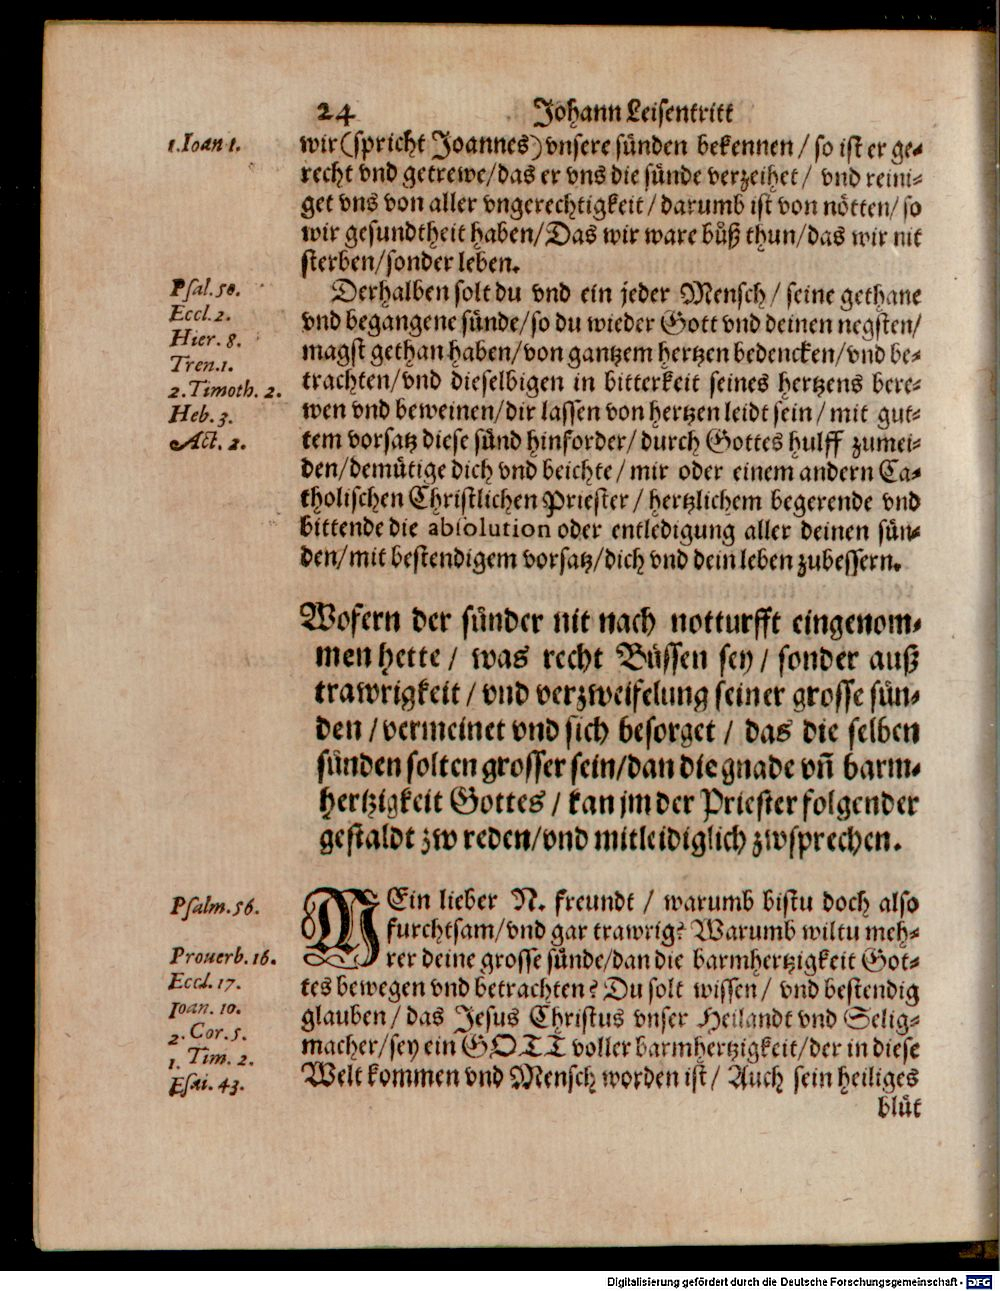 24 Johann Leisentritt
1. Ioan 1.
wir (spricht Joannes) vnsere sünden bekennen / so ist er ge-
recht vnd getrewe / das er vns die sünde verzeihet / vnd reini-
get vns von aller vngerechtigkeit / darumb ist von nötten / so
wir gesundtheit haben / Das wir ware buͤß thun / das wir nit
sterben / sonder leben.
Psal. 50.
Eccl. 2.
Hier. 8.
Tren. 1.
2. Timoth. 2.
Heb. 3.
Act. 2.
Derhalben solt du vnd ein jeder Mensch / seine gethane
vnd begangene sünde / so du wieder Gott vnd deinen negsten /
magst gethan haben / von gantzem hertzen bedencken / vnd be-
trachten / vnd dieselbigen in bitterkeit seines hertzens bere-
wen vnd beweinen / dir lassen von hertzen leidt sein / mit gut-
tem vorsatz diese sünd hinforder / durch Gottes hulff zumei-
den / demütige dich vnd beichte / mir oder einem andern Ca-
tholischen Christlichen Priester / hertzlichem begerende vnd
bittende die absolution oder entledigung aller deinen sün-
den / mit bestendigem vorsatz / dich vnd dein leben zubessern.
Wofern der sünder nit nach notturfft eingenom-
men hette / was recht Büssen sey / sonder auß
trawrigkeit / vnd verzweifelung seiner grosse sün-
den / vermeinet vnd sich besorget / das die selben
sünden solten grosser sein / dan die gnade vn̄ barm-
hertzigkeit Gottes / kan jm der Priester folgender
gestaldt zw reden / vnd mitleidiglich zwsprechen.
Psalm. 56.
Prouerb. 16.
Eccl. 17.
Ioan. 10.
2. Cor. 5.
1. Tim. 2.
Esai. 43.
MEin lieber N. freundt / warumb bistu doch also
furchtsam / vnd gar trawrig? Warumb wiltu meh-
rer deine grosse sünde / dan die barmhertzigkeit Got-
tes bewegen vnd betrachten? Du solt wissen / vnd bestendig
glauben / das Jesus Christus vnser Heilandt vnd Selig-
macher / sey ein GOTT voller barmhertzigkeit / der in diese
Welt kommen vnd Mensch worden ist / Auch sein heiliges
bluͤt
Digitalisierung gefördert durch die Deutsche Forschungsgemeinschaft - DFG